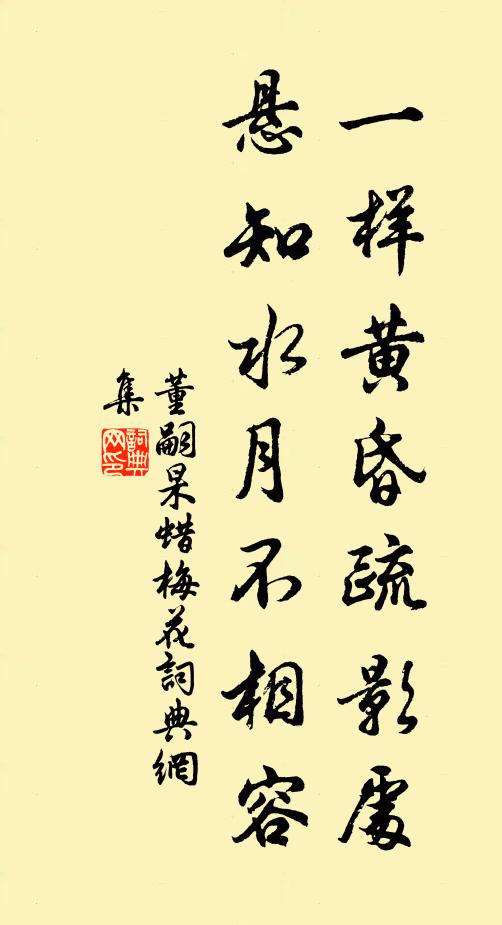 一样黄昏疏影處
悬知水月不相容
董嗣杲蜡梅花詞典網
集
詞典
网印